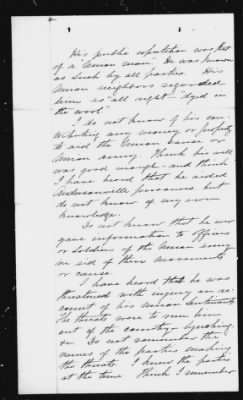 His public reputation was that
of a "Union man". He was known
as such by all parties. His
Union neighbors regarded
him as "all right" "dyed in
the wool"
I do not know of his con-
tributing any money or property
to aid the Union cause or
Union army. Think his will
was good enough and think
I have heard that he aided
Andersonville prisoners but
do not know of my own
knowledge.
Do not know that he ever
gave information to officers
or soldiers of the Union army
in aid of their movements
or cause.
I have heard that he was
threatened with injury on ac-
count of his Union sentiments
The threats were to run him
out of the country, lynching
&c. Do not remember the
names of the parties making
the threats. I knew the parties
at the time. Think I remember